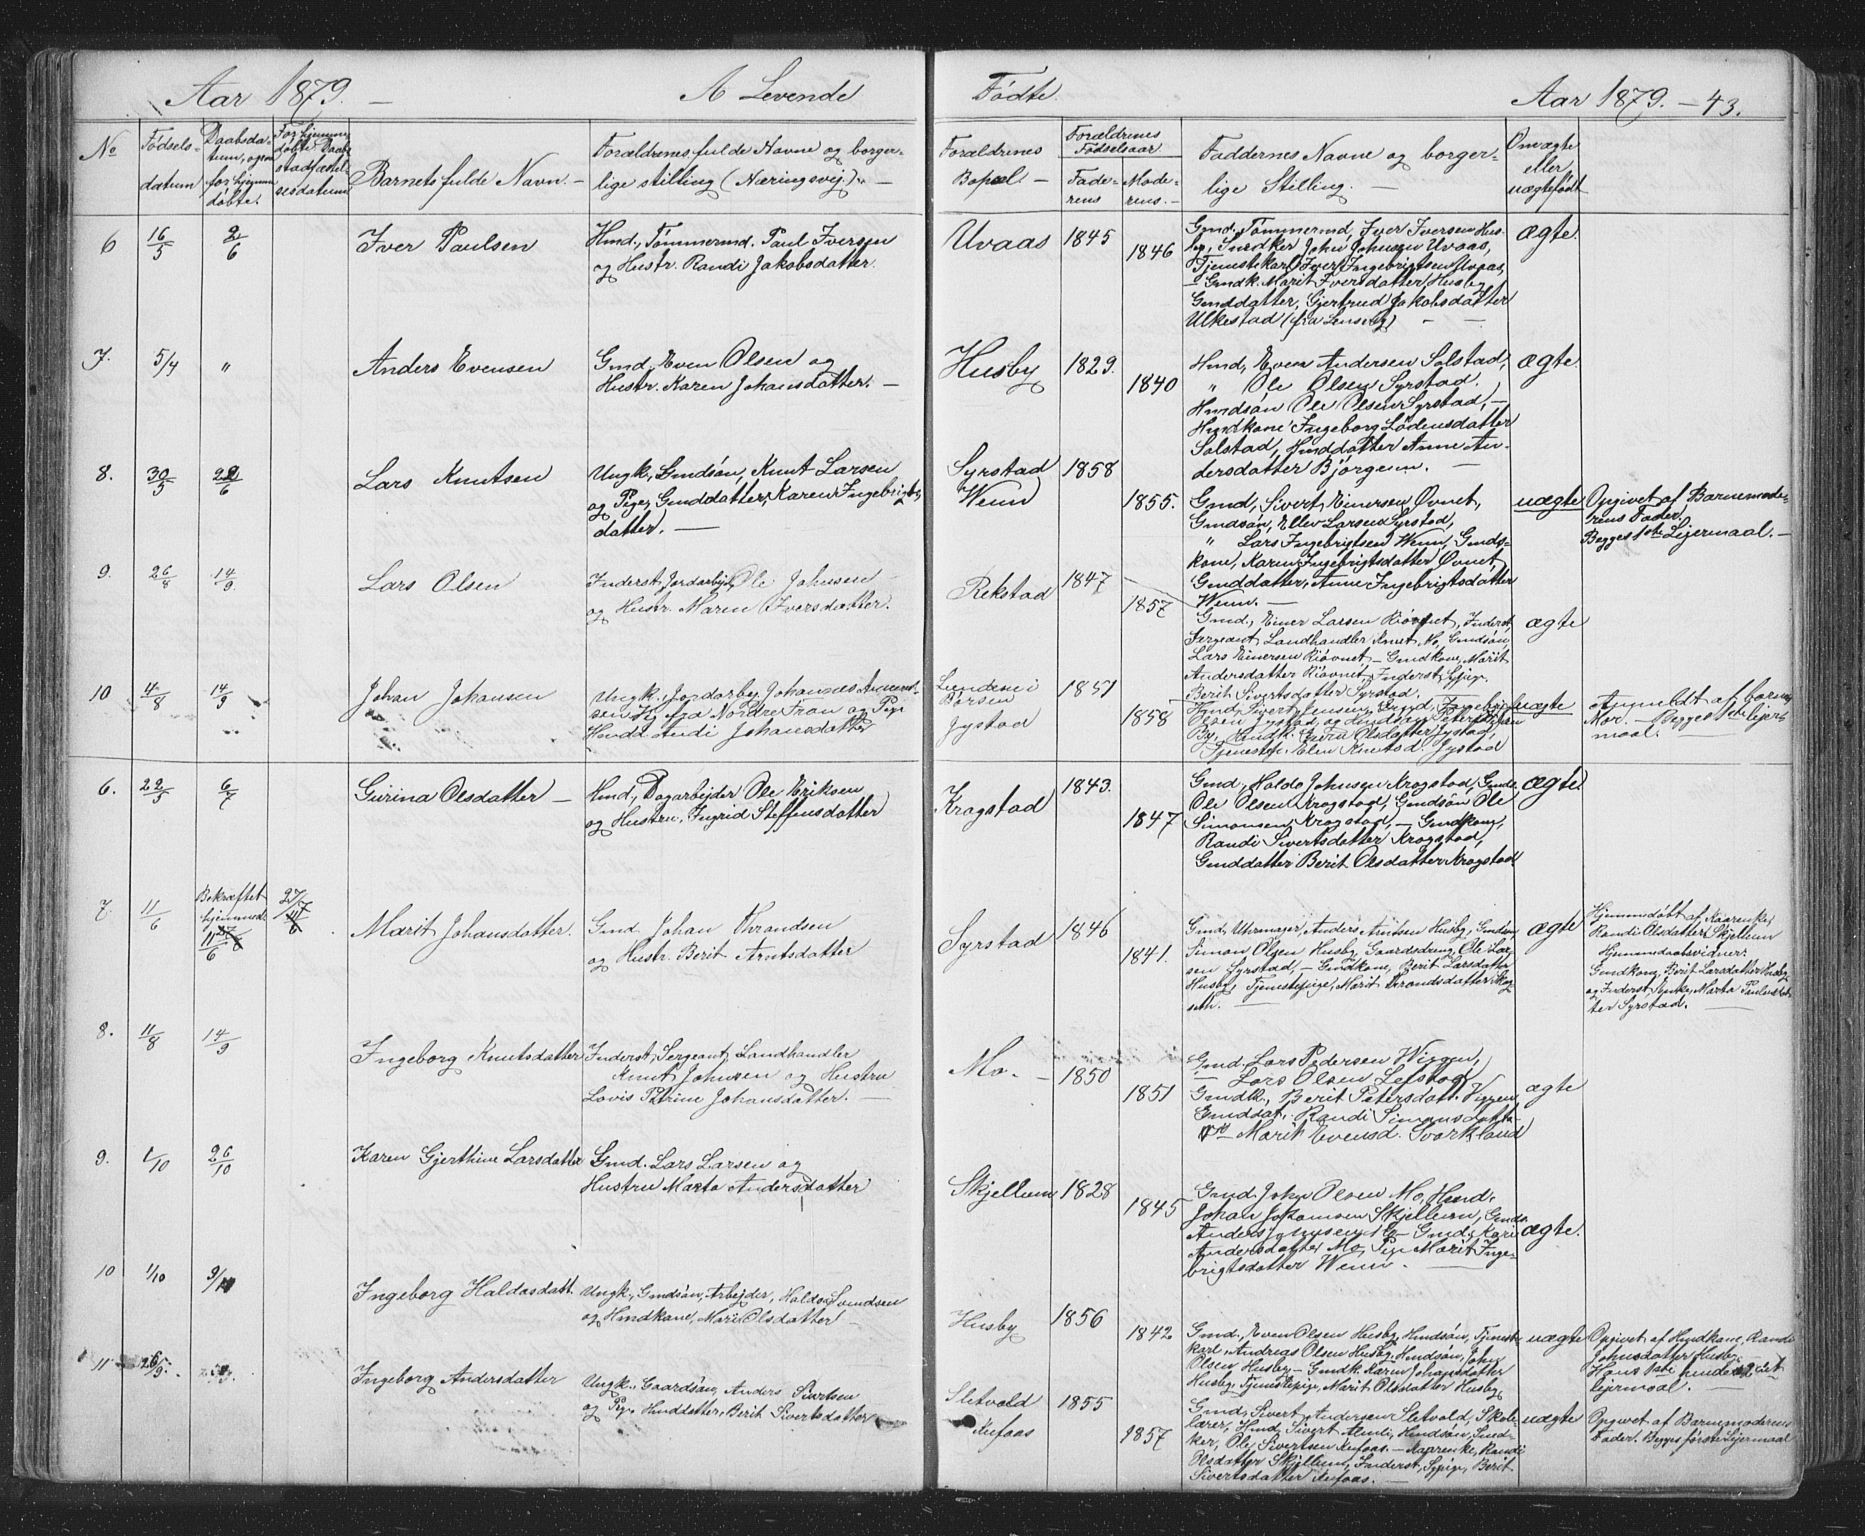 Aar 1879. — A Levende Födte. Aar 1879. — 43.
No
Födsels-
datum
Daabsda-
döbte.
Barnets fulde Navn. —
Forældrenes fulde Navne og borger-
lige stilling (Næringsvej). —
Forældrenes
Bopæl. —
Forældrenes
Födselsaar
Fade-
rens
Mode-
rens. —
Faddernes Navne og borger-
lige Stilling. —
Om ægte
eller
uægte födt
6 16/5 2/6 Iver Paulsen
Hmd., Tömmermd. Paul Iversen
og Hustr. Randi Jakobsdatter.
Uvaas 1845
1846
Gmd. Tömmermd, Iver Iversen Hus-
by, Snedker John Johnsen Uvaas,
Tjenestekarl Iver Ingebrigtsen Uvaas,
– Gmdk. Marit Iversdatter Husby
Gmddatter, Gjertrud Jakobsdatter
Ulkestad (fra Lensvig) —
ægte.
7. 5/4 " Anders Evensen
Gmd. Even Olsen og
Hustr. Karen Johansdatter. —
Husby 1829.
1840
Hmd, Even Andersen Solstad,
" Ole Olsen Syrstad.
Hmdsön Ole Olsen Syrstad, —
Hmdkone Ingeborg Lödensdatter
Solstad, Hmddatter Anne An-
dersdatter Björgum. —
ægte
8. 30/5 22/6 Lars Knutsen
Ungk., Gmdsön, Knut Larsen
og Pige, Gmddatter, Karen Ingebrigts-
datter. —
Syrstad
Wenn
1858
1855.
Gmd, Sivert Einersen Övnet,
Gmdsön, Ellev Larsen Syrstad,
" Lars Ingebrigtsen Wenn, Gmds-
kone, Karen Ingebrigtsdatter Övnet,
Gmddatter, Anne Ingebrigtsdatter
Wenn. —
uægte
Opgivet af Barnemode-
rens Fader.
Begges 1ste Lejermaal. —
9. 26/8 14/9 Lars Olsen
Inderst, Jordarbejd, Ole Johnsen
og Hustr. Maren Iversdatter.
Rekstad 1847
1857
Gmd, Einer Larsen Riövnet, Inderst,
Sergeant, Landhandler Knut Mo, Gmdsön
Lars Einersen Riövnet – Gmdkone, Marit
Andersdatter Riövnet, Inderst, Sypige,
Berit Sivertsdatter Syrstad.
ægte
10 4/8 14/9 Johan Johansen
Ungk., Jordarb. Johannes
og Pige
Johansdatter
Börsen
Jystad
1851
1858
Olsen Jystad,
Tjenestep. Elen Knutsd. Jystad
uægte
Anmeldt af barnets
Mor. — Begges 1ste lejer-
maal.
6. 22/5 6/7 Gurina Olsdatter —
Hmd., Dagarbejder Ole Eriksen
og Hustru, Ingrid Steffensdatter
Krogstad 1843.
1847
Gmd, Haldo Johnsen Krogstad, Gmds.
Ole Olsen Krogstad, Gmdsön Ole
Simonsen Krogstad, – Gmdkone,
Randi Sivertsdatter Krogstad,
Gmddatter Berit Olsdatter Krogstad
ægte
7 11/6 Bekræftet
hjemmed.
11/6 27/7
Marit Johansdatter.
Gmd. Johan Throndsen
og Hustr. Berit Arntsdatter
Syrstad 1846
1841.
Gmd, Uhrmager, Anders Arntsen Husby, Gmdsön
Simon Olsen Husby, Gaardsdreng, Ole Lar-
sen Syrstad, – Gmdkone, Berit Larsdatter
Husby, Tjenestepige, Marit Throndsdatter Mog-
seth. —
ægte
Hjemmedöbt af
Randi Olsdatter Skjellum
Hjemmedaabsvidner:
Gmdkone, Berit Larsdatter Husby
og Inderst, Marta Paulsdat-
ter Syrstad.
8. 11/8 14/9 Ingeborg Knutsdatter
Inderst, Sergeant, Landhandler
Knut Johnsen og Hustru
Lovis Petrine Johansdatter. —
Mo. – 1850
1851
Gmd. Lars Pedersen Wiggen,
— Lars Olsen
Gmdk., Berit Petersdatt. Viggen,
Gmddat., Randi Simonsdatter
— Marit Evensd. Svorkland
ægte
9. 1/10 26/10 Karen Gjerthine Larsdatter
Gmd. Lars Larsen og
Hustru Marta Andersdatter
Skjellum 1828
1845
Gmd. John Olsen Mo, Hmd.
Johan Johansen Skjellum, Gmds.
Anders Johnsen Mo – Gmdk. Kari
Andersdatter Mo, Pige Marit Inge-
brigtsdatter Wenn. —
ægte.
10 1/10 Ingeborg Haldosdatt.
Ungk., Gmdsön, Arbejder, Haldo Svendsen
og Hmdkone, Marit Olsdatter —
Husby 1856
1842
Gmd., Even Olsen Husby, Hmdsön, Tjeneste-
karl Andreas Olsen Husby, Hmdsön, John
Olsen Husby – Gmdk. Karen Johansdatter
Husby, Tjenestepige, Marit Olsdatter Husby
uægte
Opgivet af Hmdkone, Randi
Johnsdatter Husby.
Hans 1ste hendes 2det
lejermaal. —
11 Ingeborg Andersdatter
Ungk., Gaardsön, Anders Sivertsen
og Pige, Hmddatter, Berit Sivertsdatter
Sletvold
Aufaas
1855
1857
Gmd, Sivert Andersen Sletvold, Skole-
lærer, Hmd, Sivert Hmdsön, Sned-
ker, Ole Sivertsen Aufaas. — Randi
Olsdatter Skjellum, Inderst, Sypige, Berit
Sivertsdatter Aufaas. —
uægte
Opgivet af Barnemoderens
Fader. Begges förste Lejermaal